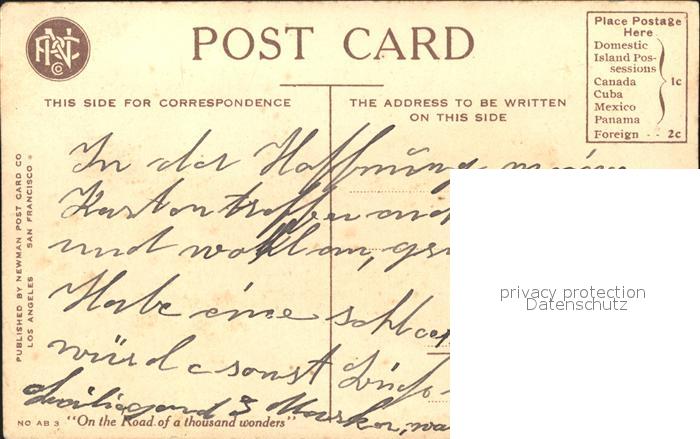 POST CARD
Place Postage
Here
Domestic
Island Pos-
sessions
Canada 1c
Cuba
Mexico
Panama
Foreign - - 2c
THIS SIDE FOR CORRESPONDENCE
THE ADDRESS TO BE WRITTEN
ON THIS SIDE
PUBLISHED BY NEWMAN POST CARD CO
LOS ANGELES SAN FRANCISCO
In der Hoffnung
Karten treffen
und wohl an,
Habe eine
würde sonst
privacy protection
Datenschutz
NO AB 3 "On the Road of a thousand wonders"